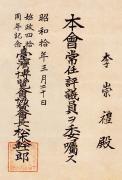 李崇禮殿
本會常任評議員ヲ委囑ス
昭和拾年三月二十日
始政四拾周年記念
臺灣博覽會協贊會長松木幹一郎